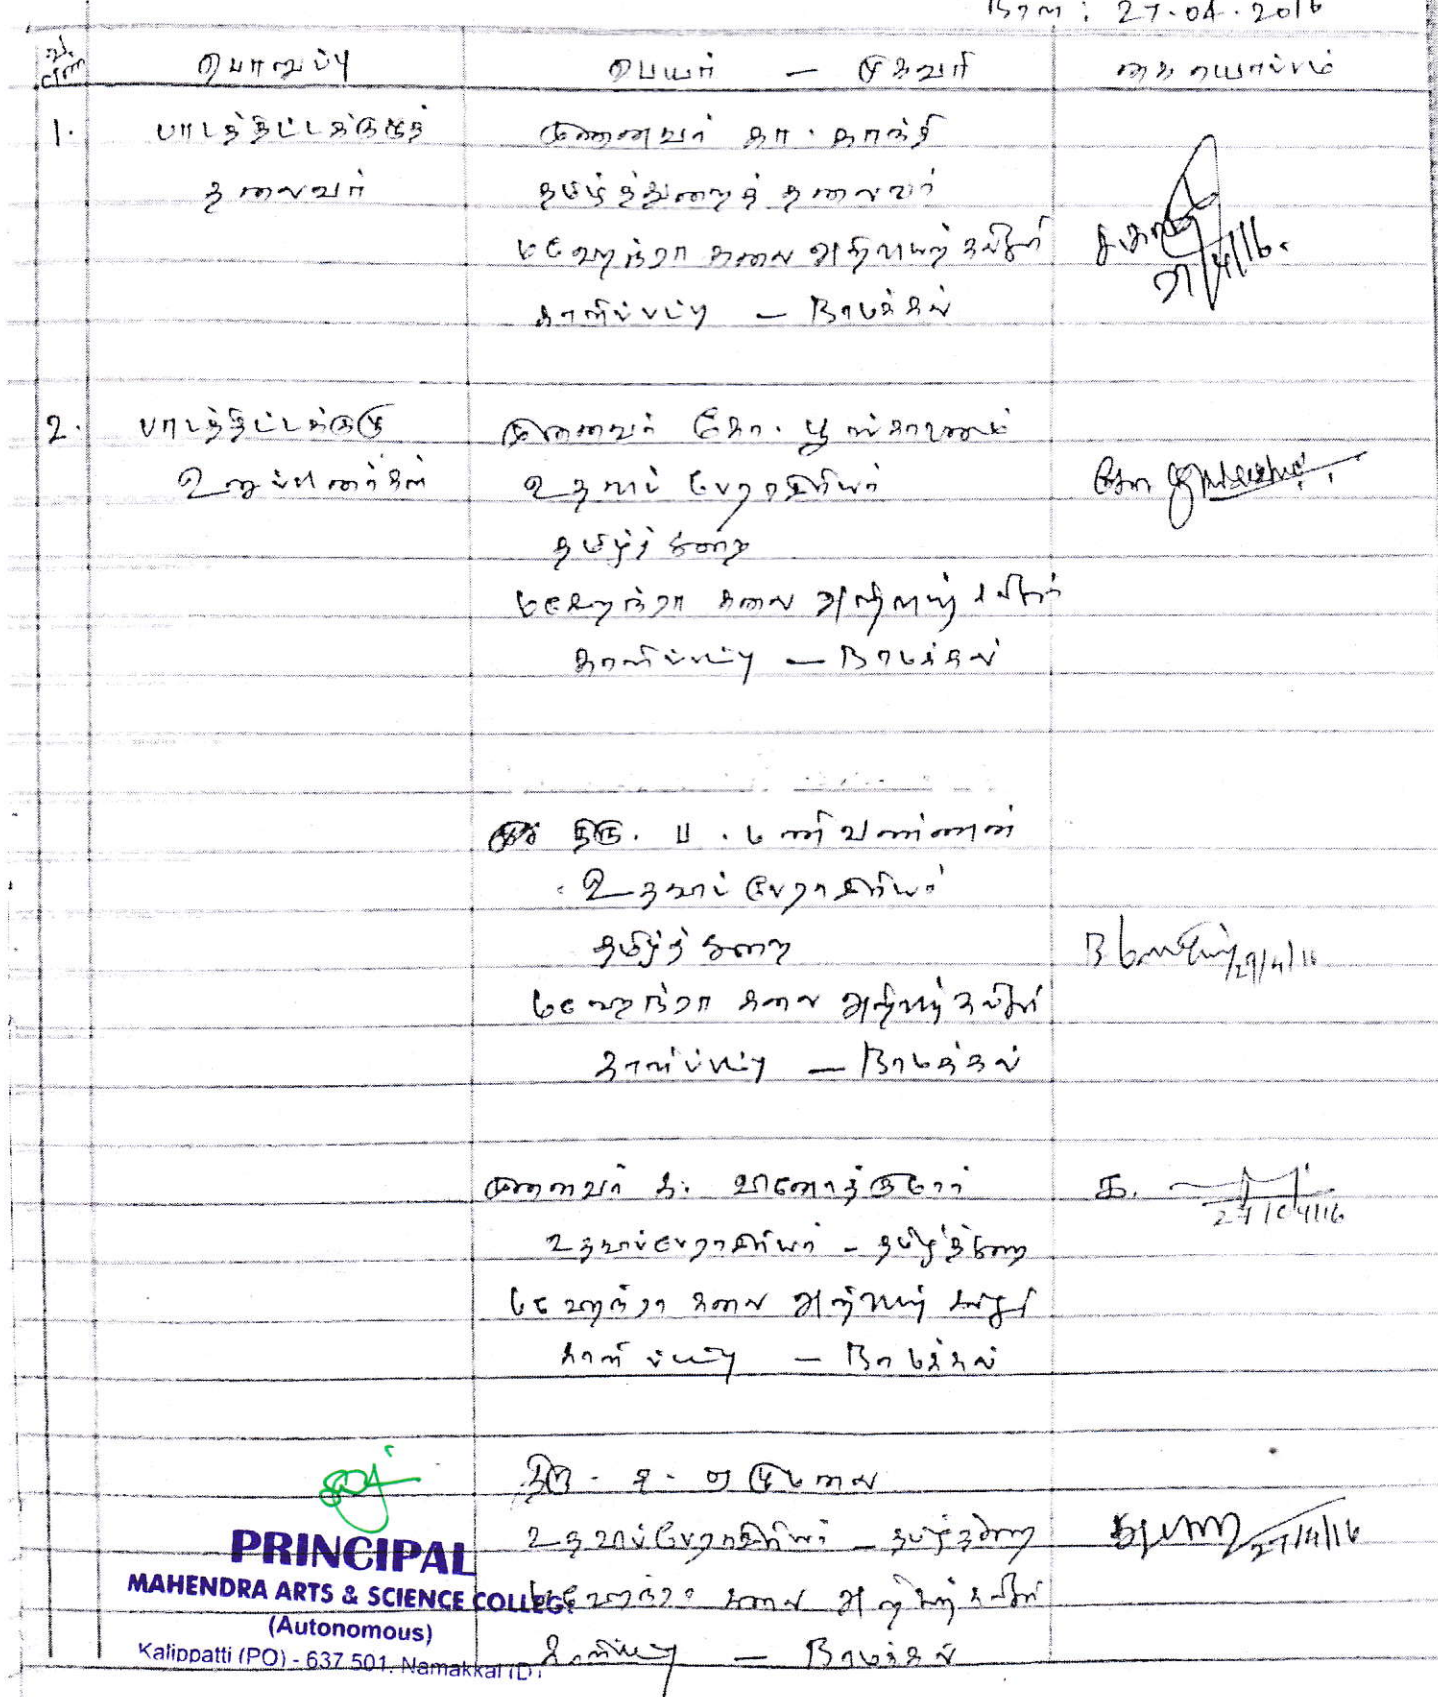 நாள் : 27.04.2016
வ. எண் பொறுப்பு பெயர் – முகவரி கையொப்பம்
1. பாடத்திட்டக்குழுத் முனைவர் கா. காந்தி
தலைவர் தமிழ்த்துறைத் தலைவர்
மகேந்ரா கலை அறிவியற் கல்லூரி
காளிப்பட்டி – நாமக்கல்
27/4/16.
2. பாடத்திட்டக்குழு முனைவர் கோ.
உறுப்பினர்கள் உதவிப் பேராசிரியர்
தமிழ்த் துறை
மகேந்ரா கலை அறிவியற் கல்லூரி
காளிப்பட்டி – நாமக்கல்
திரு. ப. மணிவண்ணன்
உதவிப் பேராசிரியர்
தமிழ்த் துறை
27/4/16
மகேந்ரா கலை அறிவியற் கல்லூரி
காளிப்பட்டி – நாமக்கல்
முனைவர் க. வினோத்குமார் க.
27/04/16
உதவிப்பேராசிரியர் – தமிழ்த்துறை
மகேந்ரா கலை அறிவியற் கல்லூரி
காளிப்பட்டி – நாமக்கல்
திரு. ச. ஏழுமலை
உதவிப்பேராசிரியர் – தமிழ்த்துறை 27/4/16
மகேந்ரா கலை அறிவியற் கல்லூரி
காளிப்பட்டி – நாமக்கல்
PRINCIPAL
MAHENDRA ARTS & SCIENCE COLLEGE
(Autonomous)
Kalippatti (PO) - 637 501. Namakkal (DT)